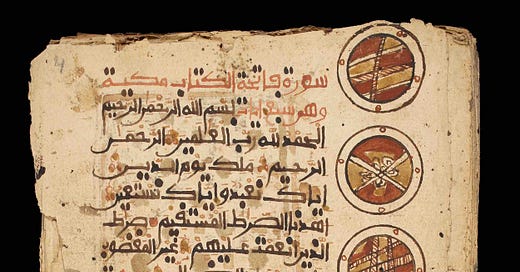 سورة فاتحة الكتاب مكية
وهي سبع ايات بسم الله الرحمن الرحيم
الحمد لله رب العلمين الرحمن
الرحيم ملك يوم الدين
اياك نعبد واياك نستعين
اهدنا الصرط المستقيم صرط
الذين انعمت عليهم غير المغضوب